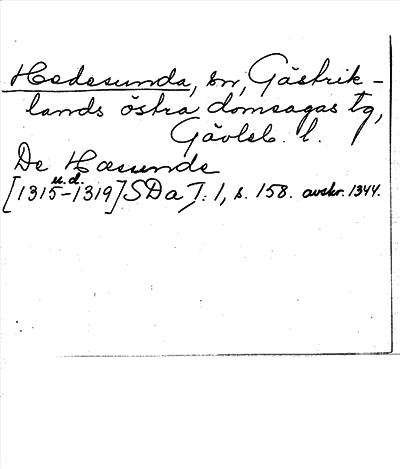 Hedesunda, sn, Gästrik-
lands östra domsagas tg,
Gävleb. l.
De Hæsunde
u.d.
[1315-1319] SDa I: 1, s. 158. avskr. 1344.